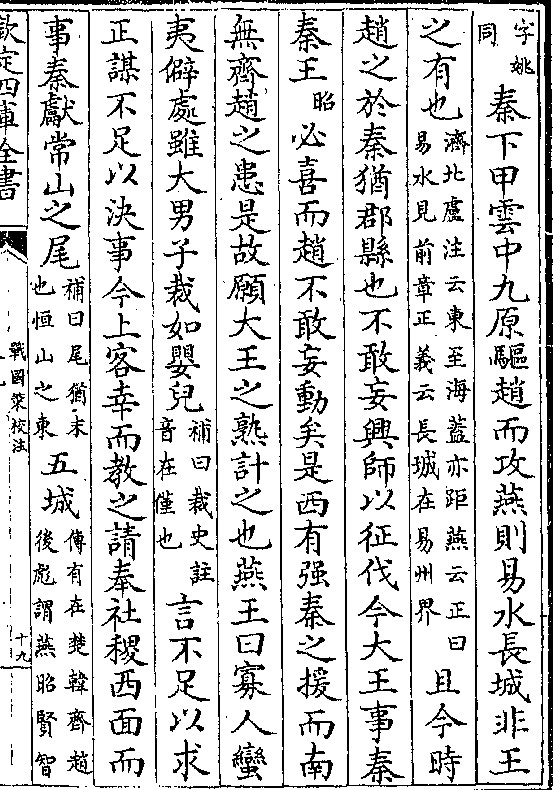 字姚同秦下甲雲中九原驅趙而攻燕則易水長城非王
之有也濟北盧注云東至海蓋亦距燕云正曰易水見前章正義云長城在易州界且今時
趙之於秦猶郡縣也不敢妄興師以征伐今大王事秦
秦王昭必喜而趙不敢妄動矣是西有强秦之援而南
無齊趙之患是故願大王之熟計之也燕王曰寡人蠻
夷僻處雖大男子裁如嬰兒補曰裁史註音在僅也言不足以求
正謀不足以決事今上客幸而教之請奉社稷西面而
事秦獻常山之尾補曰尾猶末也恒山之東五城傳有在楚韓齊趙後彪謂燕昭賢智
欽定四庫全書
戰國策校注
十九